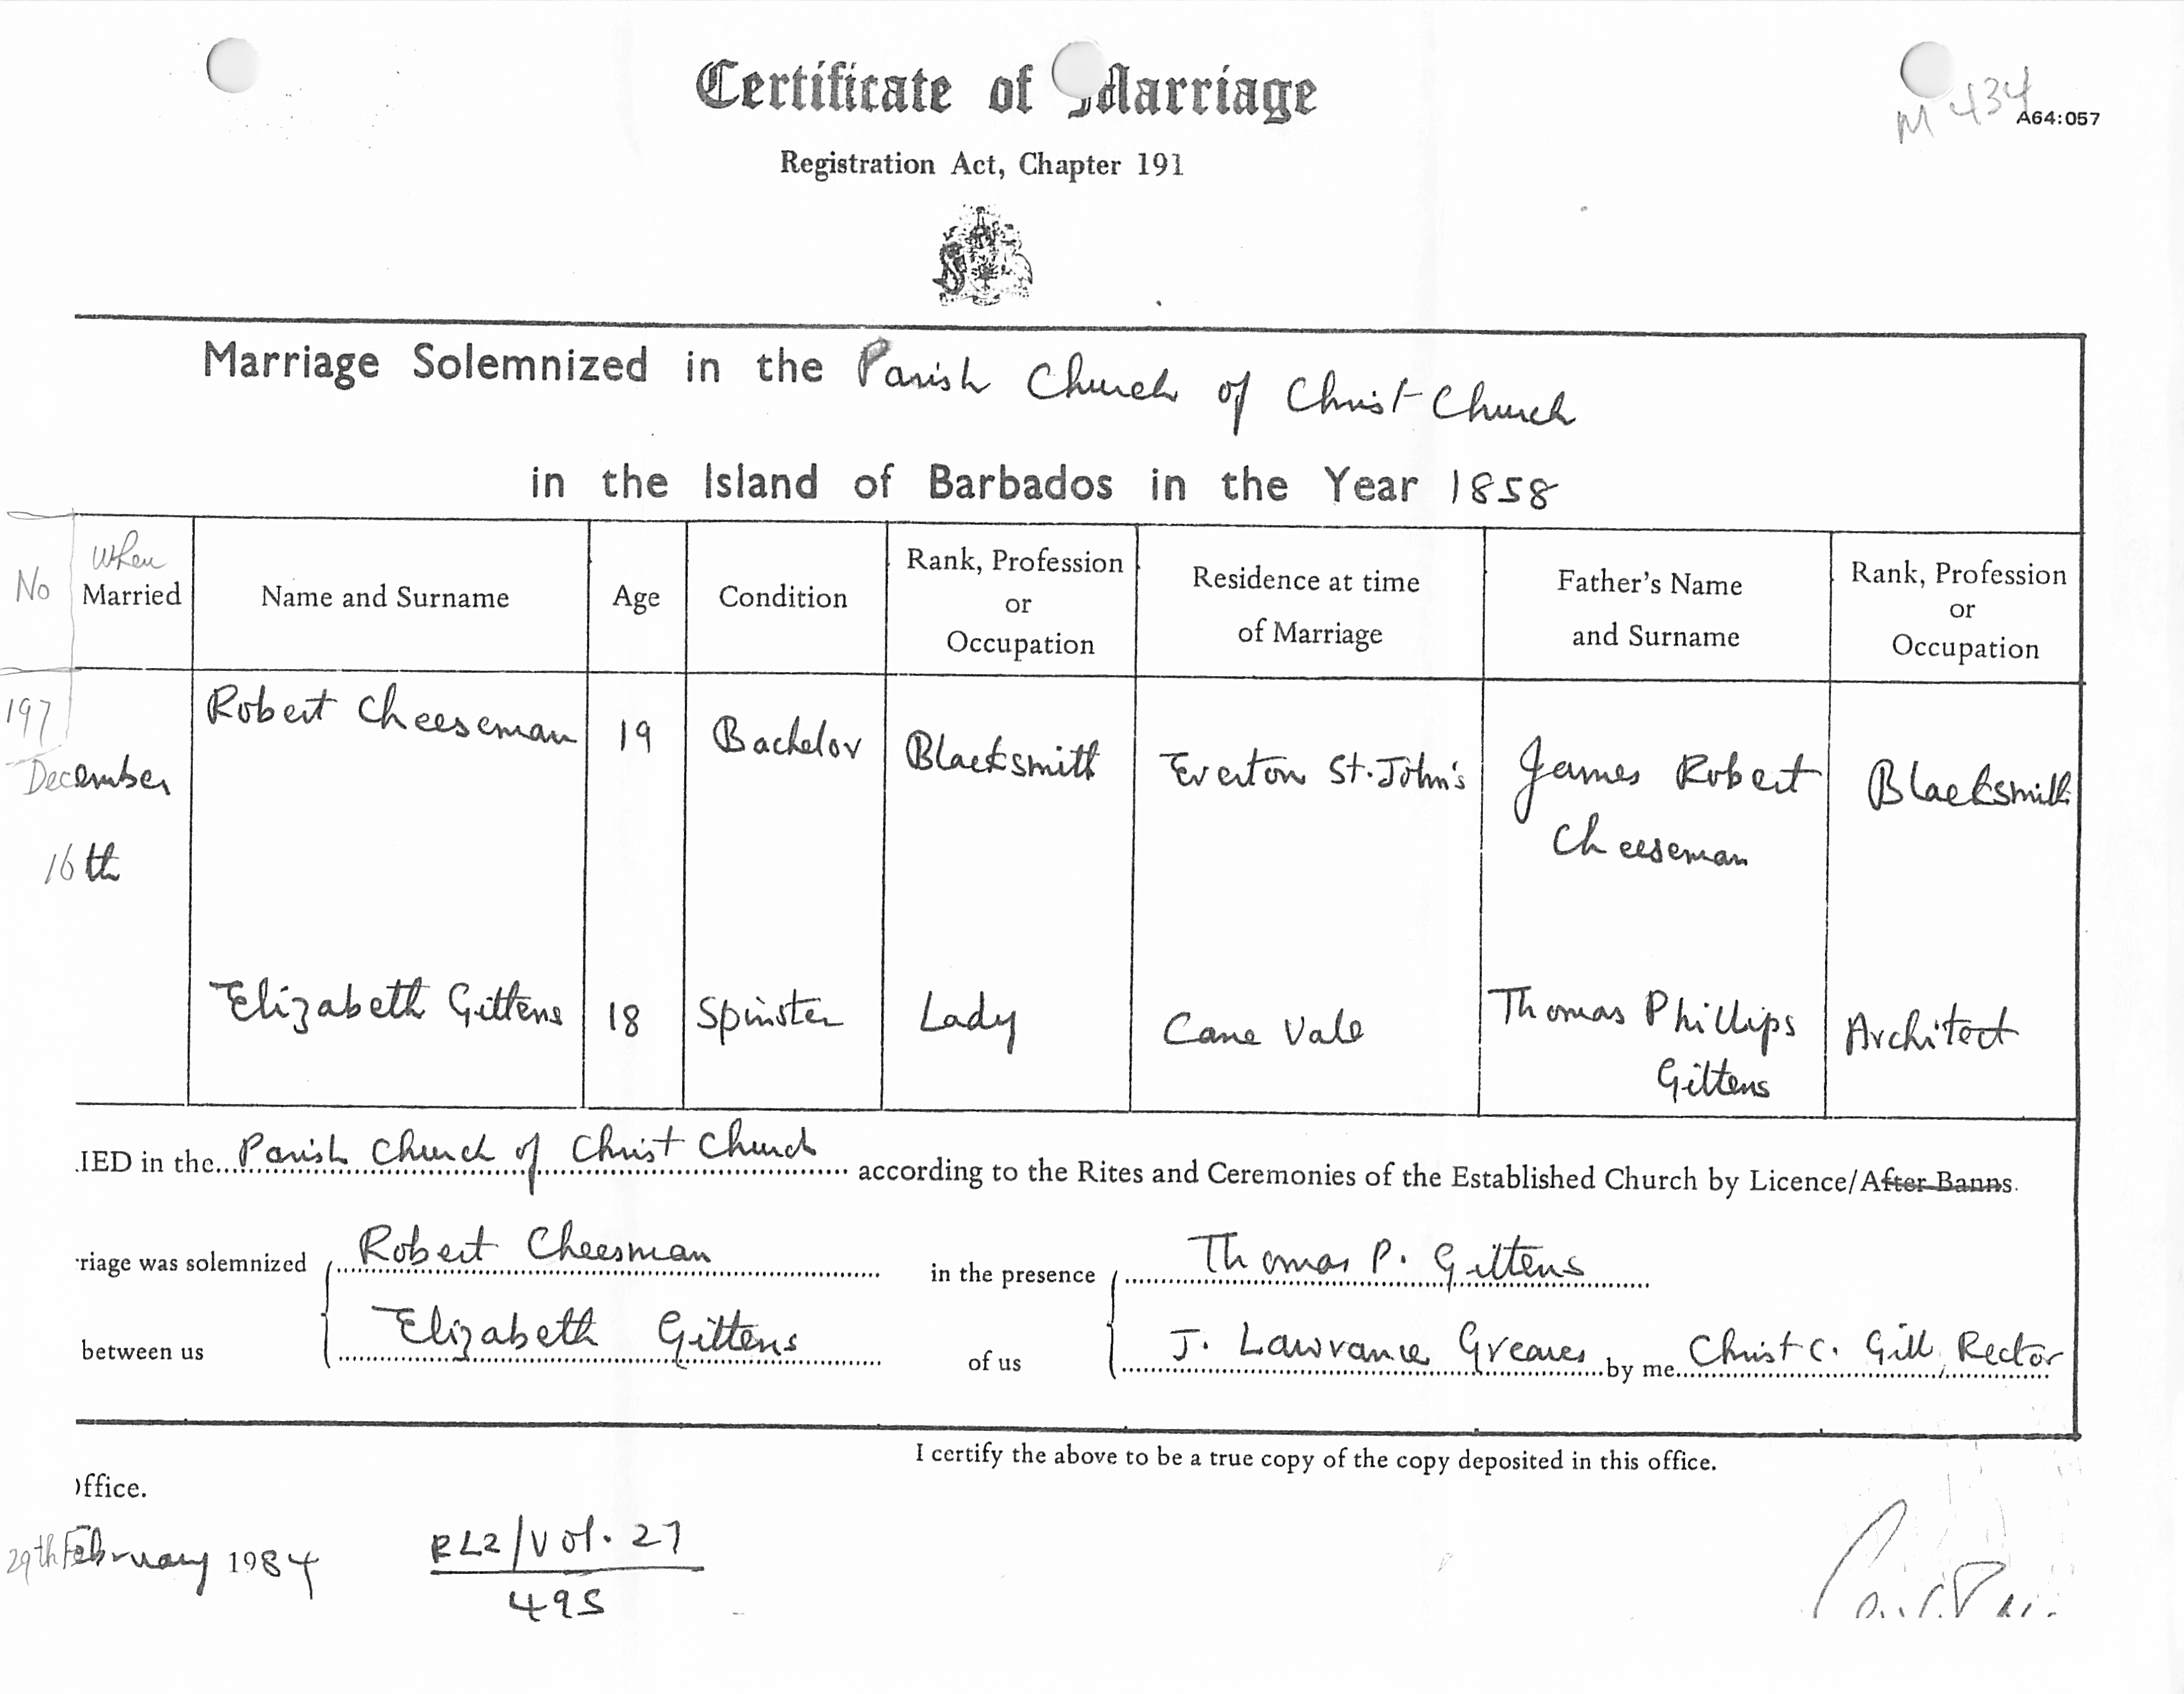 Certificate of Marriage
M 434
A64:057
Registration Act, Chapter 191
Marriage Solemnized in the Parish Church of Christ Church
in the Island of Barbados in the Year 1858
No
When Married
Name and Surname
Age
Condition
Rank, Profession or Occupation
Residence at time of Marriage
Father's Name and Surname
Rank, Profession or Occupation
197
December 16th
Robert Cheeseman
19
Bachelor
Blacksmith
Everton St. John's
James Robert Cheeseman
Blacksmith
Elizabeth Gittens
18
Spinster
Lady
Cane Vale
Thomas Phillips Gittens
Architect
IED in the Parish Church of Christ Church according to the Rites and Ceremonies of the Established Church by Licence/After Banns.
riage was solemnized
Robert Cheesman
in the presence
Thomas P. Gittens
between us
Elizabeth Gittens
of us
J. Lawrance Greaves by me Christ C. Gill, Rector
I certify the above to be a true copy of the copy deposited in this office.
ffice.
29th February 1984
RL2/Vol. 27
495